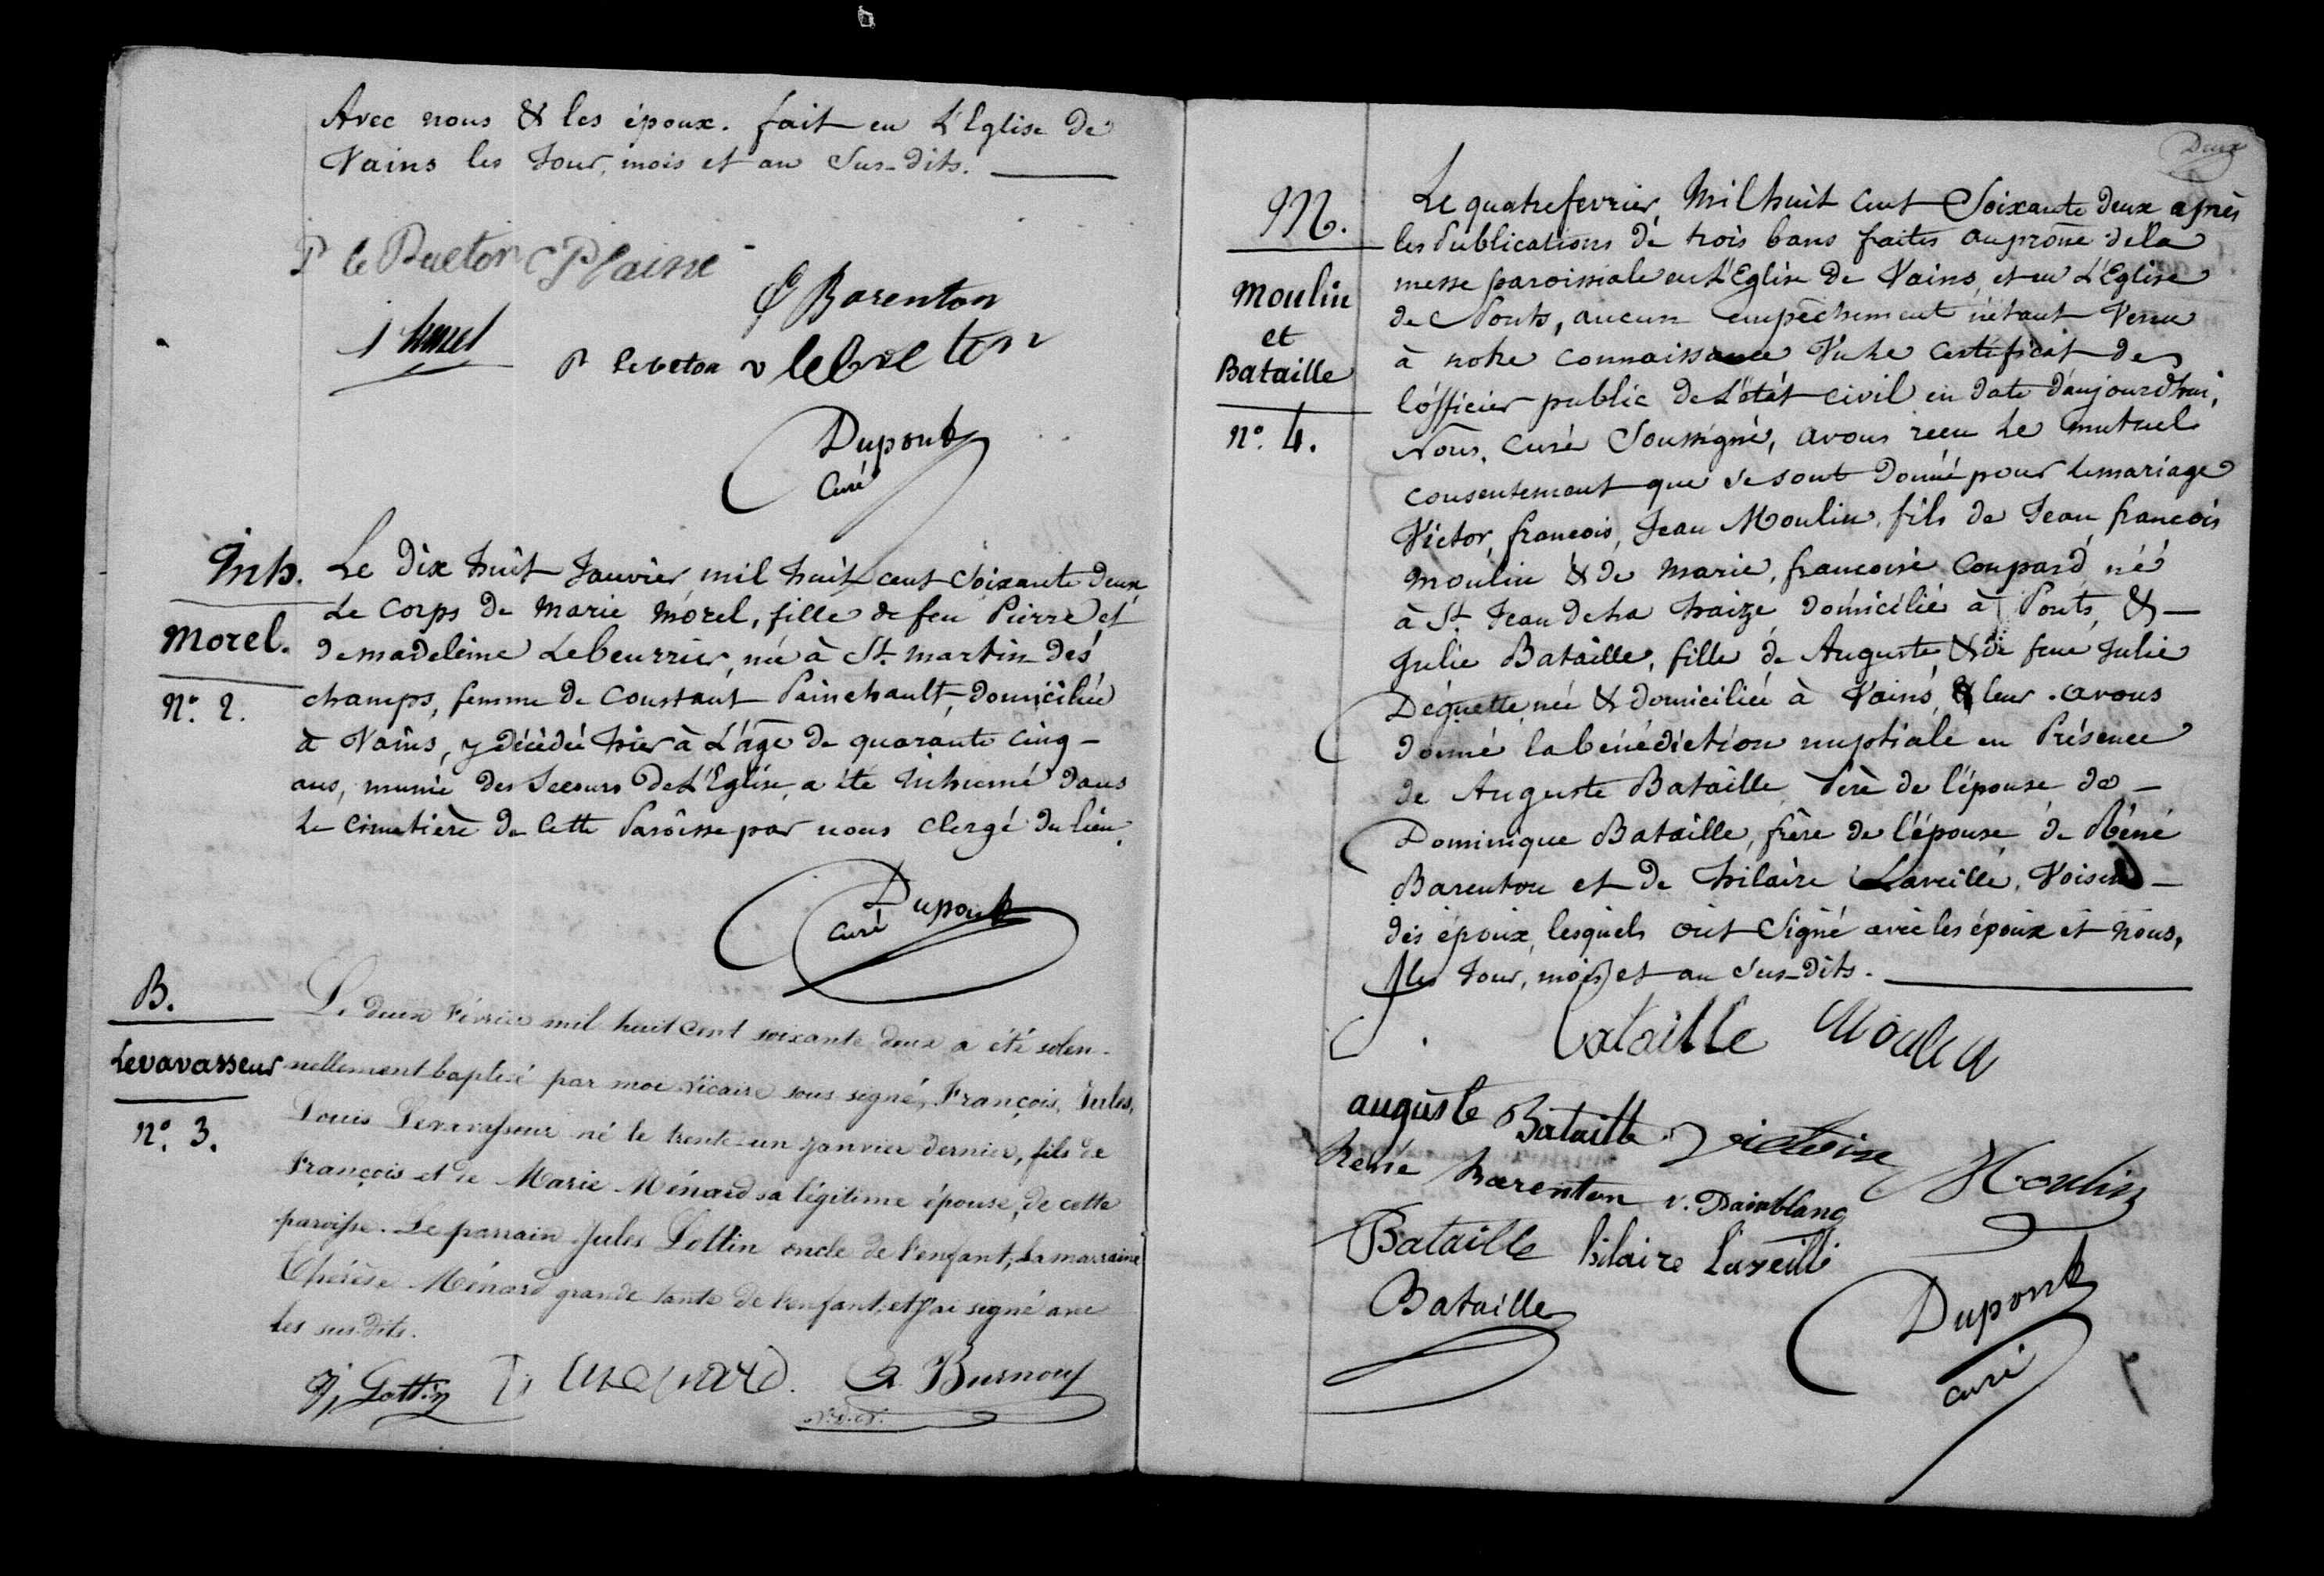 Avec nous & les époux. fait en L'Eglise de
Vains les Jour, mois et an Sus-dits.
P le
Barenton
P lebreton v lebreton
Dupont
Curé
Inh.
Morel.
N°. 2.
Le dix huit Janvier mil huit cent Soixante deux
Le Corps de Marie Morel, fille de feu Pierre et
de madeleine Lebeurrier, née à St. martin des
champs, femme de Constant Painchault, domiciliée
à Vains, y décédée hier à L'âge de quarante cinq
ans, munie des Secours de L'Eglise, a été Inhumé dans
Le Cimetière de Cette Paroisse par nous Clergé du lieu.
Dupont
Curé
B.
Levavasseur
N°. 3.
Le deux Février mil huit cent soixante deux a été solen-
nellement baptisé par moi vicaire sous signé, François, Jules,
Louis Levavasseur né le trente-un Janvier dernier, fils de
François et de Marie Ménard sa légitime épouse, de cette
paroisse. Le parrain Jules Lottin oncle de l'enfant, La marraine
Thérèse Ménard grande tante de l'enfant, et j'ai signé avec
les sus-dits.
J, Lottin T, menard. A. Burnouf
Deux
M.
Moulin
et
Bataille
N°. 4.
Le quatre fevrier, Mil huit Cent Soixante deux après
les Publications de trois bans faites au prône de la
messe paroissiale en L'Eglise de Vains, et en L'Eglise
de Ponts, aucun empêchement n'étant Venu
à notre connaissance Vu Le Certificat de
l'officier public de L'état civil en date d'aujourdhui,
Nous, Curé Soussigné, avons recu Le mutuel
consentement que se sont donné pour Le mariage
Victor, francois, Jean Moulin, fils de Jean francois
Moulin & de Marie, francoise Coupard né
à St. Jean de La haize, domicilié à Ponts, &
Julie Bataille, fille de Auguste, & de feue Julie
Déguette née & domiciliée à Vains, & leur avons
donné la bénédiction nuptiale en Présence
de Auguste Bataille Père de l'épouse de
Dominique Bataille, frère de l'épouse, de Réné
Barenton et de hilaire Laveille, Voisin
des époux, lesquels ont Signé avec les époux et nous,
les Jour, mois et an Sus-dits.
Bataille Moulin
auguste Bataille victoire Moulin
Rene Barenton v. Dainblanc
Bataille hilaire Laveille
Bataille
Dupont
curé